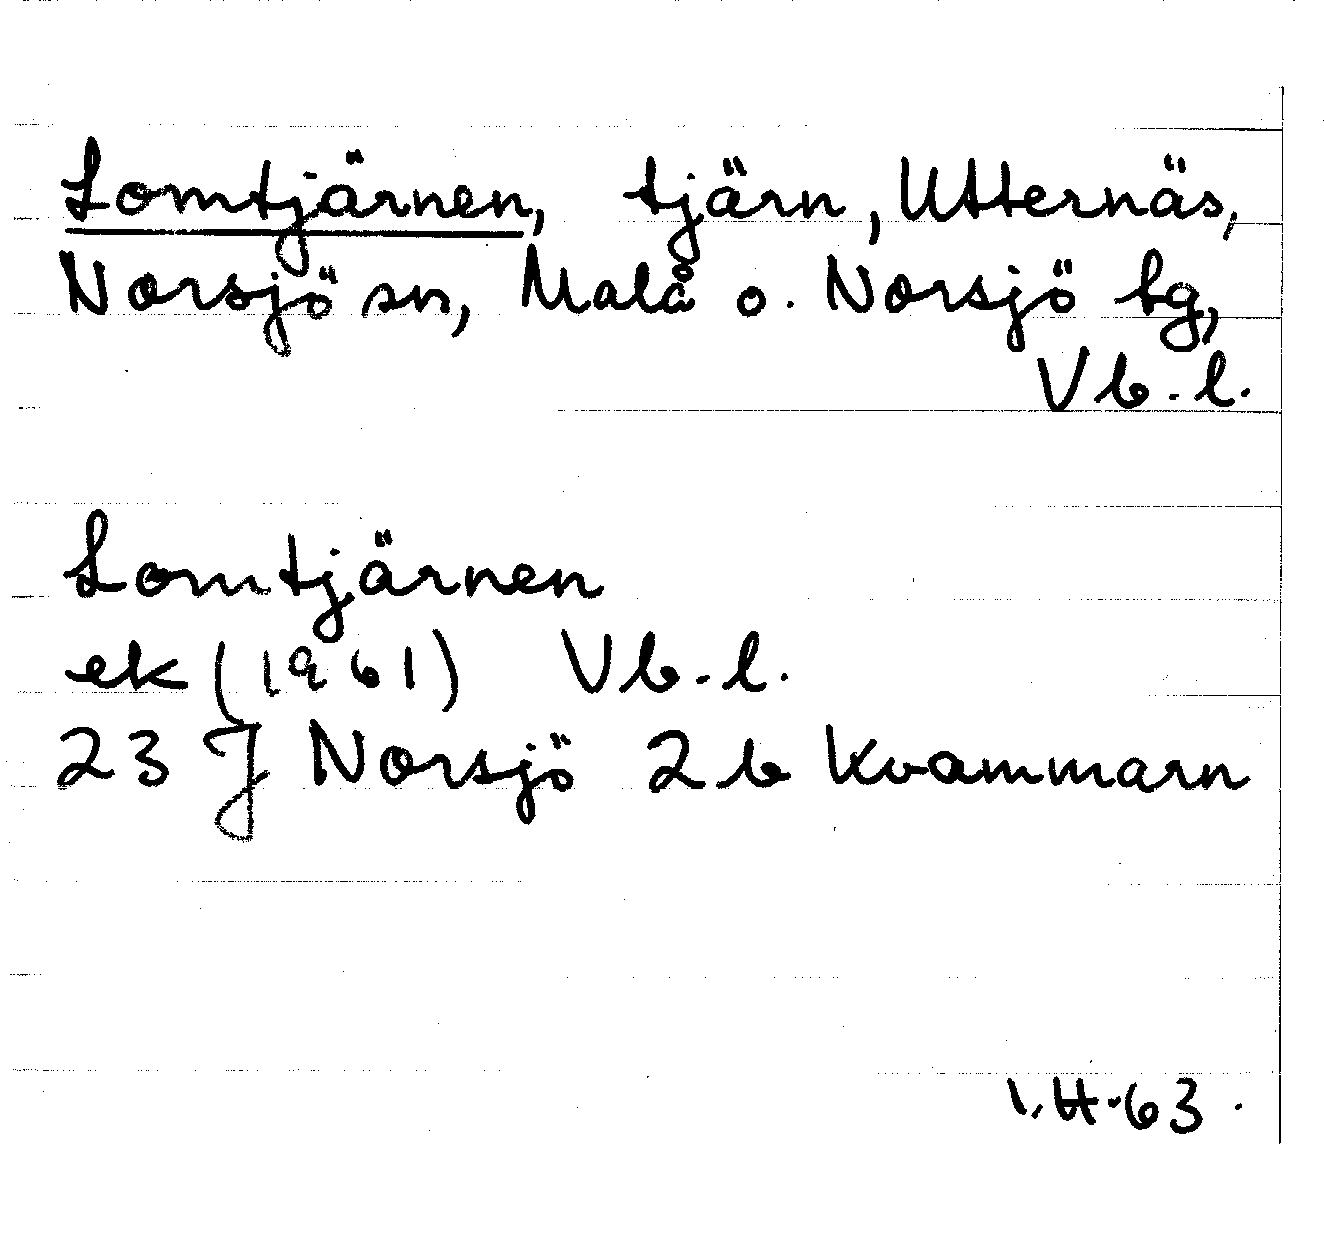 Lomtjärnen, tjärn, Utternäs,
Norsjö sn, Malå o. Norsjö tg,
Vb.l.
Lomtjärnen
ek (1961) Vb.l.
23 J Norsjö 2b Kvammarn
I.H-63.